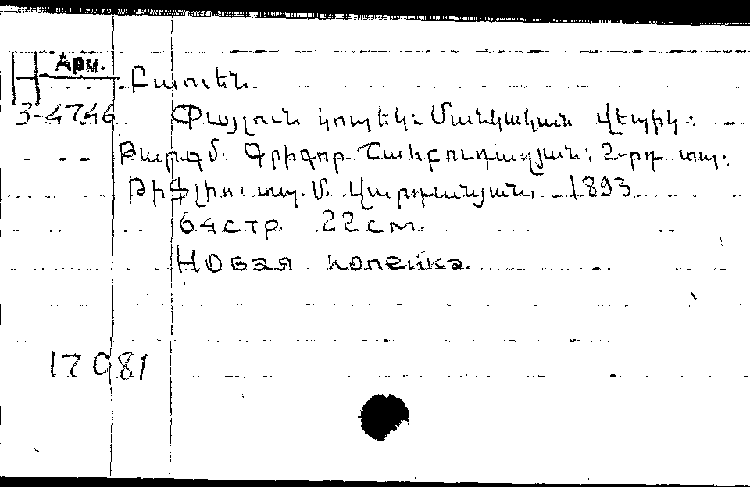 Арм.
Բասուեն
3-4746 Փայլուն կոպեկ: Մանկական վէպիկ:
Թարգմ. Գրիգոր Շահբուդաղյան: 2-րդ տպ.
Թիֆլիս տպ. Մ. Վարդանյան, 1893
64 стр. 22 см.
Новая копейка.
17081